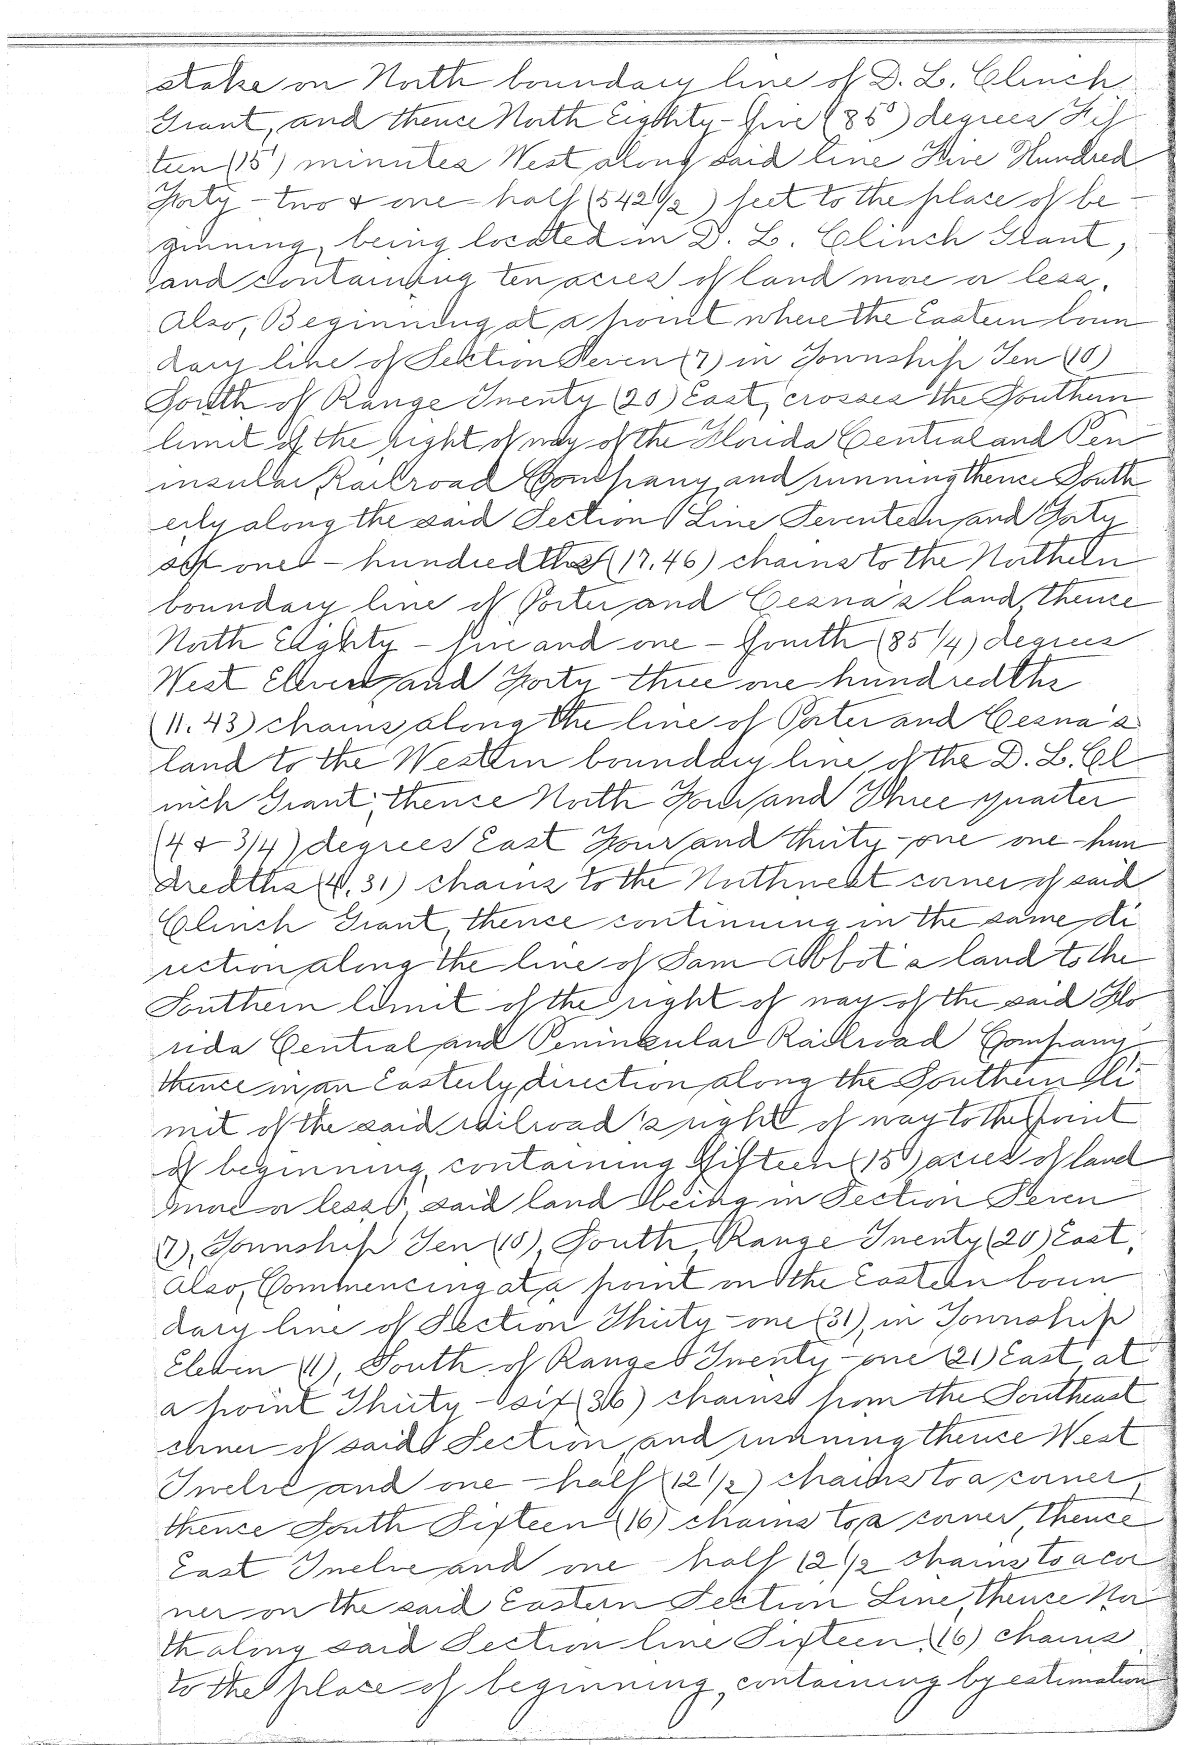 stake on North boundary line of D. L. Clinch
Grant, and thence North Eighty-five (85°) degrees Fif
teen (15') minutes West along said line Five Hundred
Forty-two & one-half (542 1/2) feet to the place of be-
ginning, being located in D. L. Clinch Grant,
and containing ten acres of land more or less.
Also, Beginning at a point where the Eastern boun
dary line of Section Seven (7) in Township Ten (10)
South of Range Twenty (20) East, crosses the Southern
limit of the right of way of the Florida Central and Pen
insular Railroad Company, and running thence South
erly along the said Section Line Seventeen and Forty
six one-hundredths (17.46) chains to the Northern
boundary line of Porter and Cesna's land, thence
North Eighty-five and one-fourth (85 1/4) degrees
West Eleven and Forty-three one hundredths
(11.43) chains along the line of Porter and Cesna's
land to the Western boundary line of the D. L. Cl
inch Grant; thence North Four and Three quarter
(4 & 3/4) degrees East Four and thirty-one one-hun
dredths (4.31) chains to the Northwest corner of said
Clinch Grant, thence continuing in the same di
rection along the line of Sam Abbot's land to the
Southern limit of the right of way of the said Flo
rida Central and Peninsular Railroad Company
thence in an Easterly direction along the Southern li-
mit of the said railroad's right of way to the point
of beginning, containing fifteen (15) acres of land
more or less, said land being in Section Seven
(7), Township Ten (10), South, Range Twenty (20) East.
Also, Commencing at a point on the Eastern boun
dary line of Section Thirty-one (31), in Township
Eleven (11), South of Range Twenty-one (21) East, at
a point Thirty-six (36) chains from the Southeast
corner of said Section, and running thence West
Twelve and one-half (12 1/2) chains to a corner,
thence South Sixteen (16) chains to a corner, thence
East Twelve and one half 12 1/2 chains to a cor
ner on the said Eastern Section Line, thence Nor
th along said Section line Sixteen (16) chains
to the place of beginning, containing by estimation